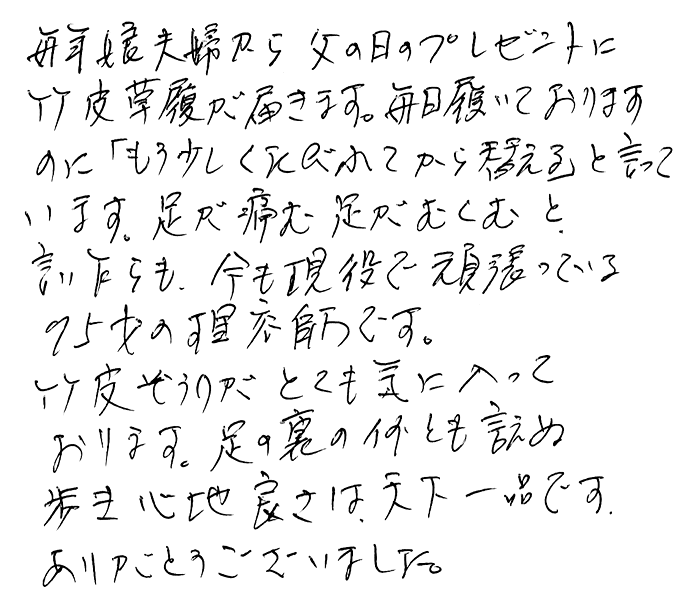 毎年娘夫婦から父の日のプレゼントに
竹皮草履が届きます。毎日履いております
のに「もう少しくたびれてから替える」と言って
います。足が痛む足がむくむと
言いながらも、今も現役で頑張っている
95才の理容師です。
竹皮ぞうりがとても気に入って
おります。足の裏の何とも言えぬ
歩き心地良さは、天下一品です。
ありがとうございました。